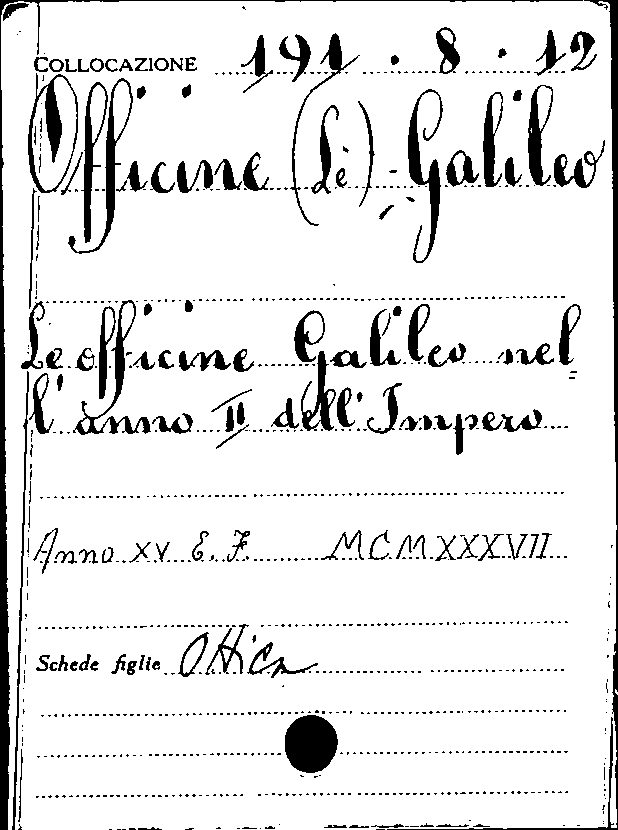 COLLOCAZIONE 191 . 8 . 12
Officine (Le) - Galileo
Le officine Galileo nel=
l'anno II dell'Impero
Anno XV E. F. MCMXXXVII
Schede figlie Ottica